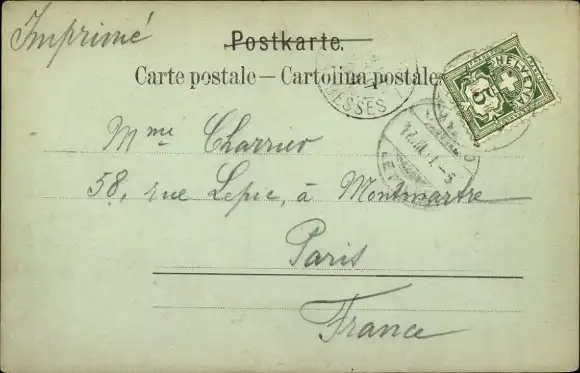 Imprimé
Postkarte.
Carte postale — Cartolina postale.
HELVETIA
5
MESSES
17.III.
Mme Charrier
58, rue Lepic, à Montmartre
Paris
France